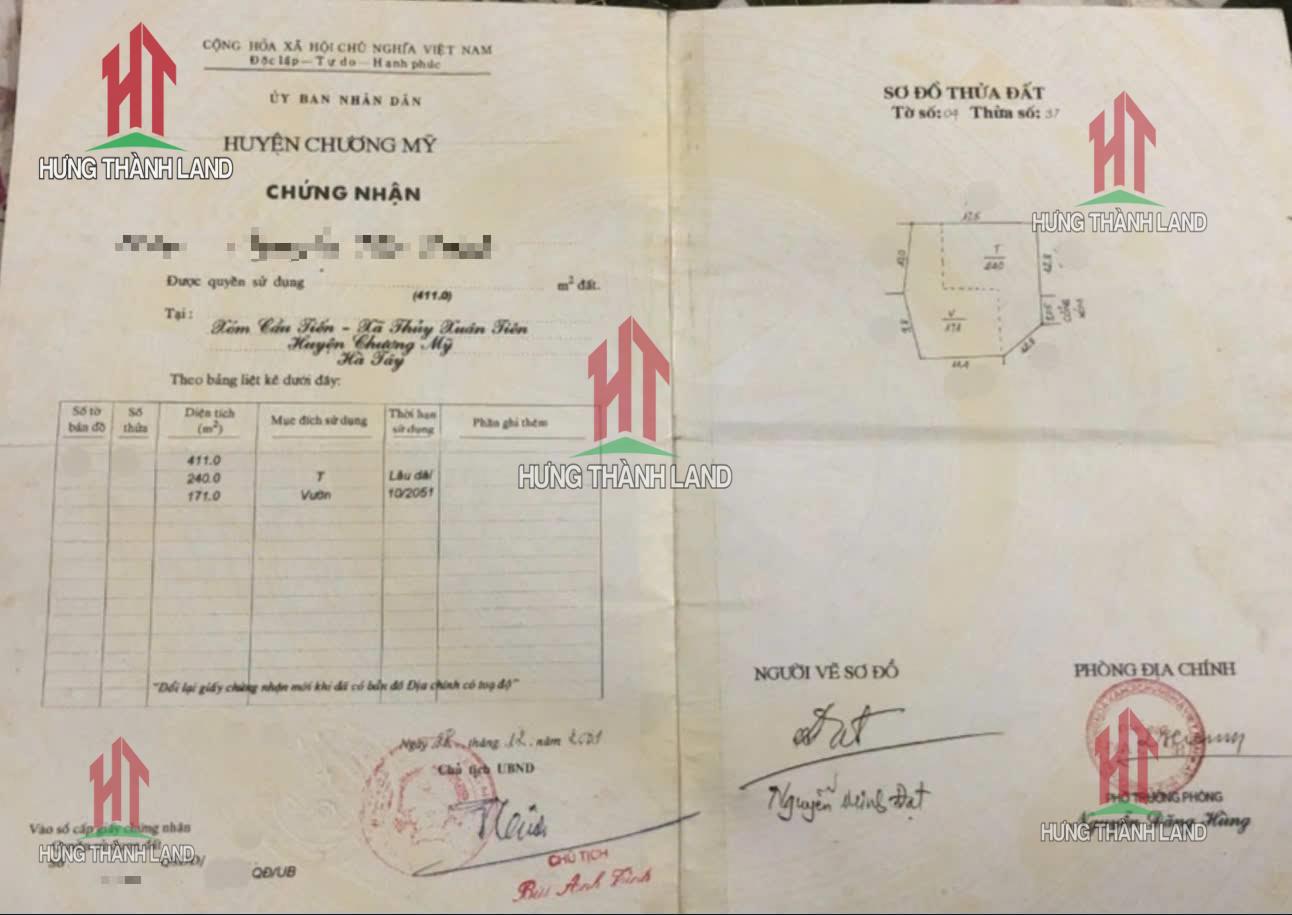 CỘNG HÒA XÃ HỘI CHỦ NGHĨA VIỆT NAM
Độc lập - Tự do - Hạnh phúc
ỦY BAN NHÂN DÂN
HUYỆN CHƯƠNG MỸ
CHỨNG NHẬN
Được quyền sử dụng (411.0) m² đất.
Tại: Xóm Cầu Tiến - Xã Thủy Xuân Tiên
Huyện Chương Mỹ
Hà Tây
Theo bảng liệt kê dưới đây:
Số tờ bản đồ Số thửa Diện tích (m²) Mục đích sử dụng Thời hạn sử dụng Phần ghi thêm
411.0
240.0 T Lâu dài
171.0 Vườn 10/2051
"Đổi lại giấy chứng nhận mới khi đã có bản đồ Địa chính có toạ độ"
Ngày tháng 12 năm 2001
Chủ tịch UBND
CHỦ TỊCH
Bùi Anh
Vào sổ cấp giấy chứng nhận
QĐ/UB
SƠ ĐỒ THỬA ĐẤT
Tờ số: 04 Thửa số: 37
T
240
V
NGƯỜI VẼ SƠ ĐỒ
Đạt
Nguyễn Minh Đạt
PHÒNG ĐỊA CHÍNH
PHÓ TRƯỞNG PHÒNG
Nguyễn Đăng Hùng
HT
HƯNG THÀNH LAND
HT
HƯNG THÀNH LAND
HT
HƯNG THÀNH LAND
HT
HƯNG THÀNH LAND
HT
HƯNG THÀNH LAND